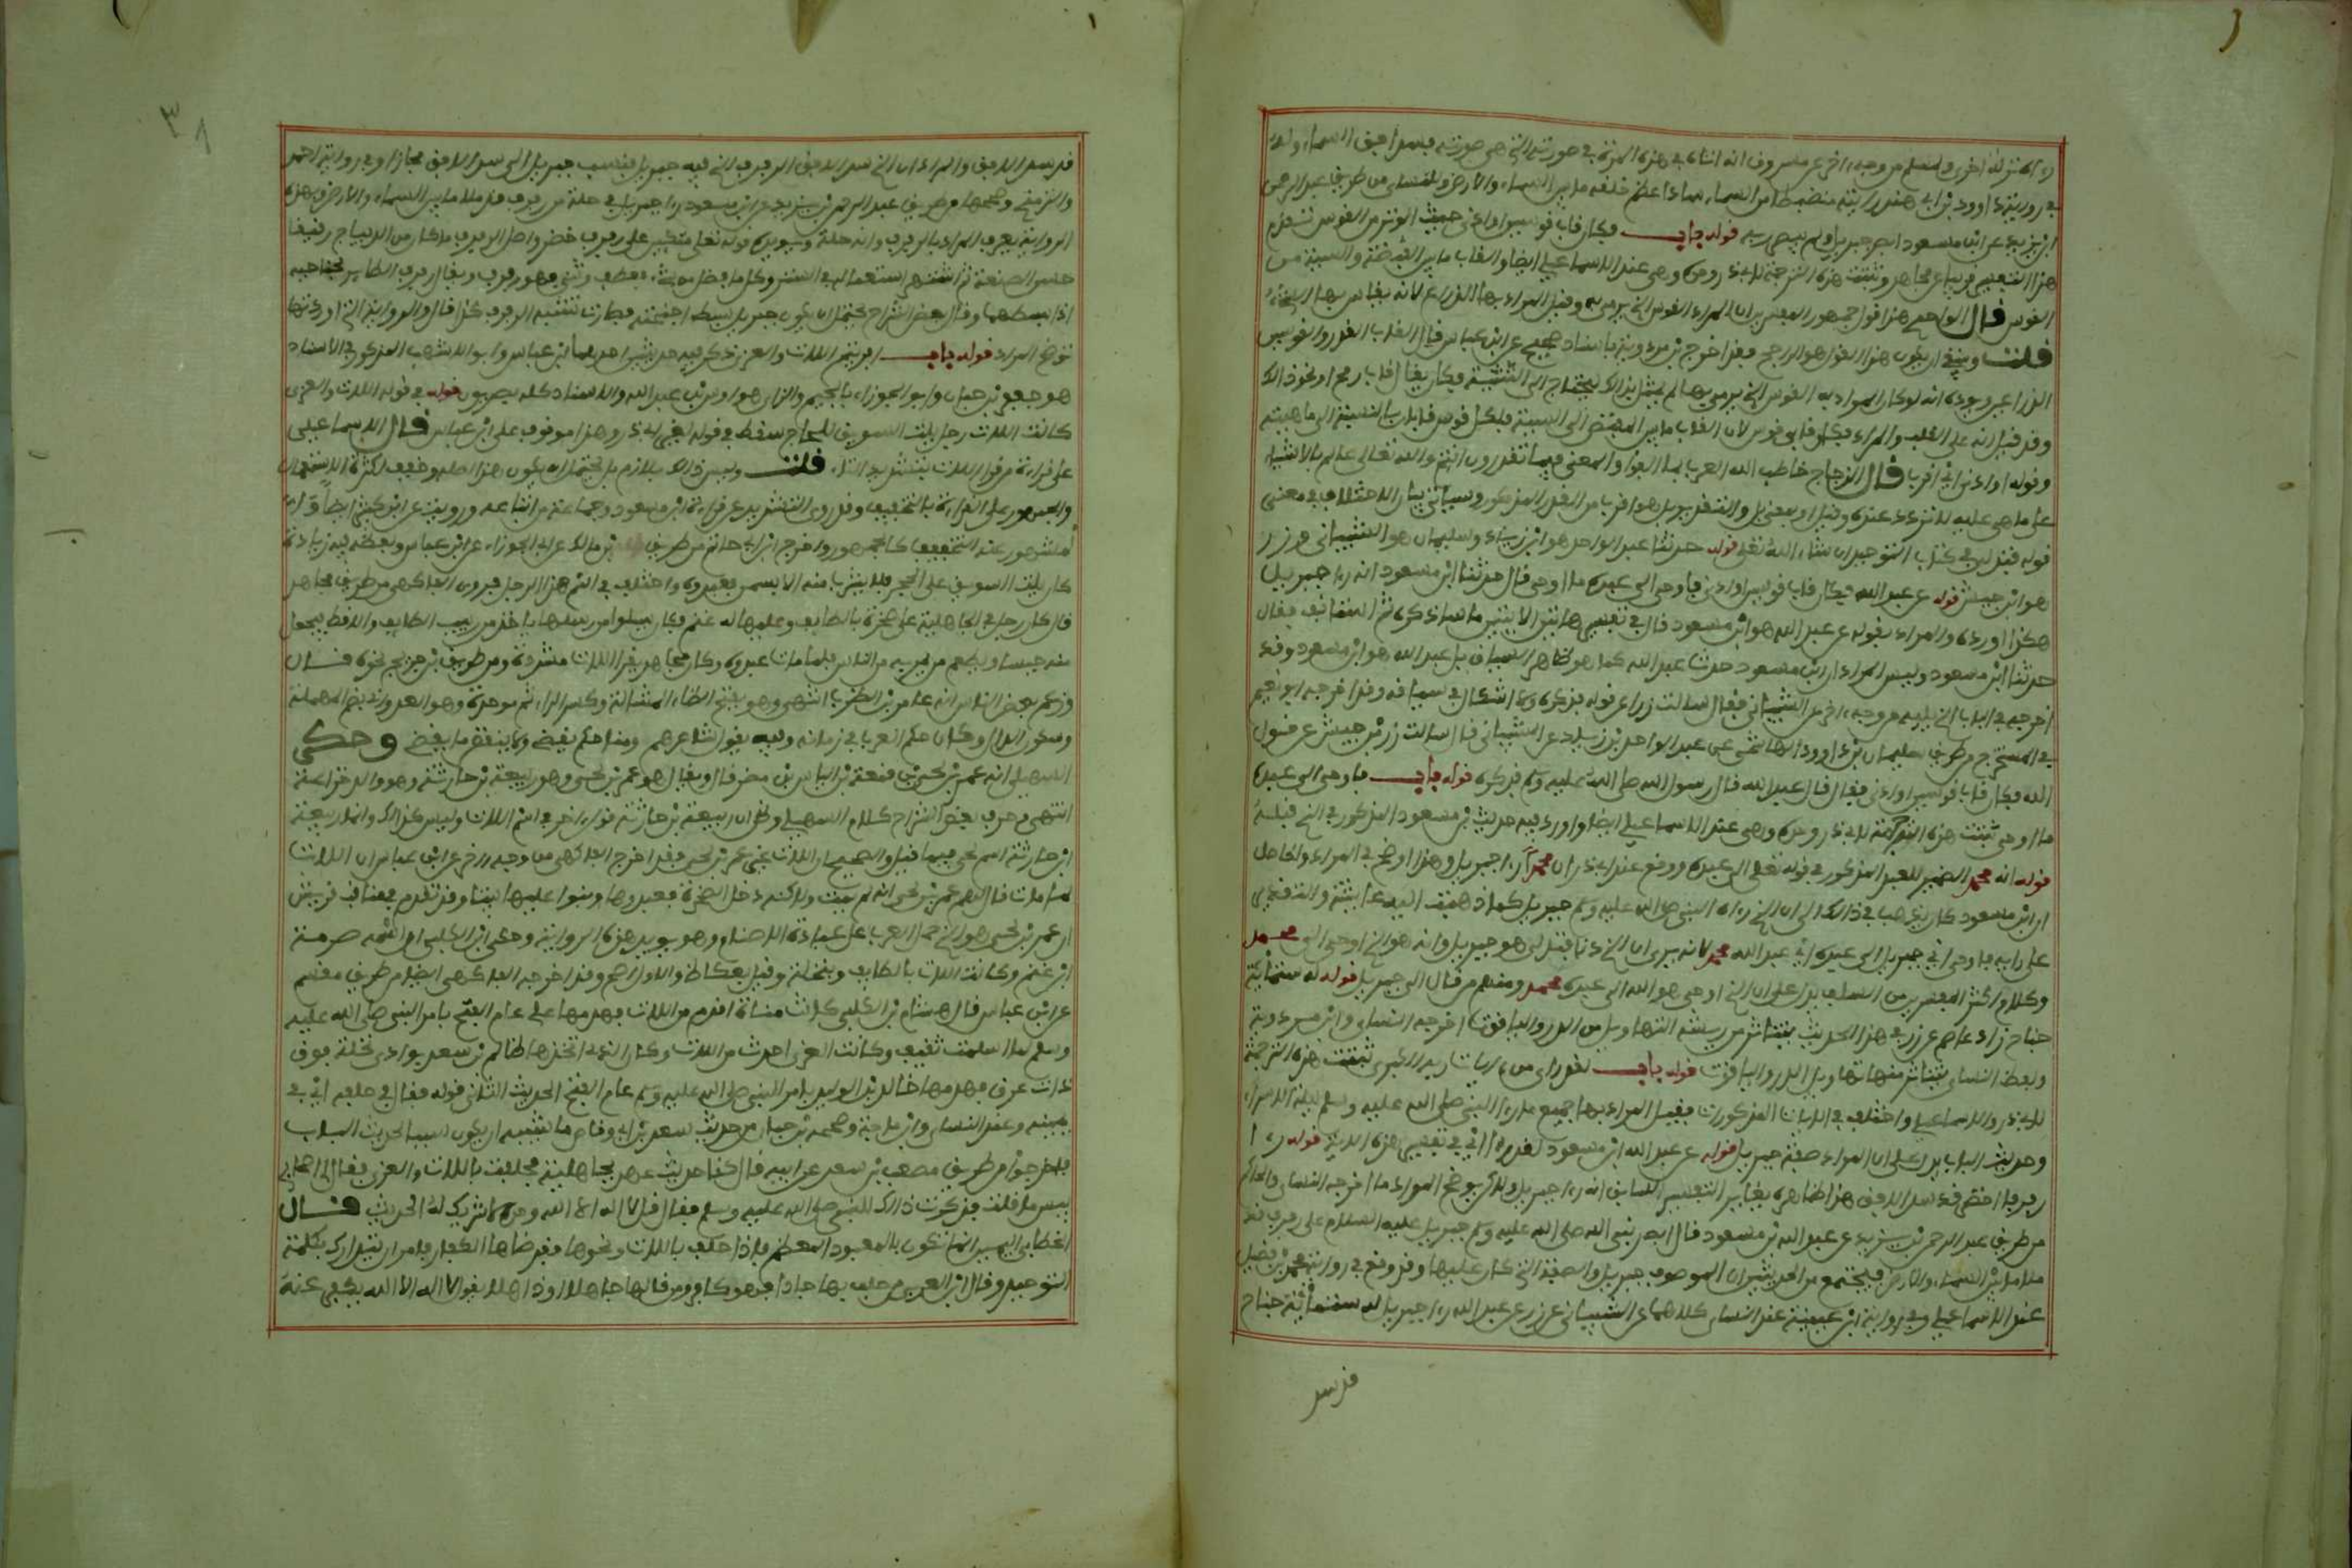 رءاه نزلة اخرى ولمسلم من وجه ءاخر عن مسروق انه اتاه في هذه المرة في صورته التي هي صورته فسد افق السماء وله
في رواية داوود بن ابي هند رايته منهبطا من السماء سادا عظم خلقه ما بين السماء والارض وللنساءي من طريق عبد الرحمن
ابن يزيد عن ابن مسعود ابصر جبريل ولم يبصر ربه قوله باب فكان قاب قوسين او ادنى حيث الوتر من القوس تقدم
هذا التفسير قريبا عن مجاهد وثبتت هذه الترجمة لابي ذر وحده وهي عند الاسماعيلي ايضا والقاب ما بين القبضة والسية من
القوس قال الواحدي هذا قول جمهور المفسرين ان المراد القوس التي يرمى بها وقيل المراد بها الذراع لانه يقاس بها الشيء
قلت وينبغي ان يكون هذا القول هو الراجح فقد اخرج ابن مردويه باسناد صحيح عن ابن عباس قال القاب القدر والقوسين
الذراعين ويؤيده انه لو كان المراد به القوس التي يرمى بها لم يمثل بذلك ليحتاج الى التثنية فكان يقال مثلا قاب رمح او نحو ذلك
وقد قيل انه على القلب والمراد فكان قابي قوس لان القاب ما بين المقبض الى السية فلكل قوس قابان بالنسبة الى ماهيته
وقوله او ادنى اي اقرب قال الزجاج خاطب الله العرب بما الفوا والمعنى فيما تقدرون انتم والله تعالى عالم بالاشياء
على ما هي عليه لا تردد عنده وقيل او بمعنى بل والتقدير بل هو اقرب من القدر المذكور وسياتي بيان الاختلاف في معنى
قوله فتدلى في كتاب التوحيد ان شاء الله تعلى قوله حدثنا عبد الواحد هو ابن زياد وسليمان هو الشيباني وزر
هو ابن حبيش قوله عن عبد الله فكان قاب قوسين او ادنى فاوحى الى عبده ما اوحى قال حدثنا ابن مسعود انه رءا جبريل
هكذا اورده والمراد بقوله عن عبد الله هو ابن مسعود قال في تفسير هاتين الايتين ما ساذكره ثم استانف فقال
حدثنا ابن مسعود وليس المراد ان ابن مسعود حدث عبد الله كما هو ظاهر السياق بل عبد الله هو ابن مسعود وقد
اخرجه في الباب الذي يليه من وجه ءاخر عن الشيباني فقال سالت زرا عن قوله فذكره ولا اشكال في سياقه وقد اخرجه ابو نعيم
في المستخرج من طريق سليمان بن داوود الهاشمي عن عبد الواحد بن زياد عن الشيباني قال سالت زر بن حبيش عن قول
الله فكان قاب قوسين او ادنى فقال قال عبد الله قال رسول الله صلى الله عليه وسلم فذكره قوله باب فاوحى الى عبده
ما اوحى ثبتت هذه الترجمة لابي ذر وحده وهي عند الاسماعيلي ايضا واورد فيه حديث ابن مسعود المذكور في الذي قبله
قوله انه محمد الضمير للعبد المذكور في قوله تعلى الى عبده ووقع عند ابي ذر ان محمدا رءا جبريل وهذا اوضح في المراد والحاصل
ان ابن مسعود كان يذهب في ذلك الى ان الذي رءاه النبي صلى الله عليه وسلم جبريل كما ذهبت اليه عايشة والتقدير
على رايه فاوحى اي جبريل الى عبده اي عبد الله محمد لانه يرى ان الذي دنا فتدلى هو جبريل وانه هو الذي اوحى الى محمد
وكلام اكثر المفسرين من السلف يدل على ان الذي اوحى هو الله الى عبده محمد ومنهم من قال الى جبريل قوله له ستمائة
جناح زاد عاصم عن زر في هذا الحديث يتناثر من ريشه التهاويل من الدر والياقوت اخرجه النساءي وابن مردويه
ولفظ النساءي يتناثر منها تهاويل الدر والياقوت قوله باب لقد راى من ءايات ربه الكبرى ثبتت هذه الترجمة
لابي ذر والاسماعيلي واختلف في الايات المذكورات فقيل المراد بها جميع ما رءا النبي صلى الله عليه وسلم ليلة الاسراء
وحديث الباب يدل على ان المراد صفة جبريل قوله عن عبد الله ابن مسعود لقد رءا اي في تفسير هذه الاية قوله رءا
رفرفا اخضر قد سد الافق هذا ظاهره يغاير التفسير السابق انه رءا جبريل ولكن يوضح المراد ما اخرجه النساءي والحاكم
من طريق عبد الرحمن بن يزيد عن عبد الله بن مسعود قال ابصر نبي الله صلى الله عليه وسلم جبريل عليه السلام على رفرف قد
ملا ما بين السماء والارض فيجتمع من الحديثين ان الموصوف جبريل والصفة التي كان عليها وقد وقع في رواية محمد بن فضيل
عند الاسماعيلي وفي رواية ابن عيينة عند النساءي كلاهما عن الشيباني عن زر عن عبد الله رءا جبريل له ستمائة جناح
قد سد
٣٨
قد سد الافق والمراد ان الذي سد الافق الرفرف الذي فيه جبريل فنسب جبريل الى سد الافق مجازا وفي رواية احمد
والترمذي وصححها من طريق عبد الرحمن بن يزيد عن ابن مسعود رءا جبريل في حلة من رفرف قد ملا ما بين السماء والارض وبهذه
الرواية يعرف المراد بالرفرف وانه حلة ويؤيده قوله تعلى متكئين على رفرف خضر واصل الرفرف ما كان من الديباج رقيقا
حسن الصنعة ثم اشتهر استعماله في الستر وكل ما فضل من شيء فعطف وثني فهو رفرف ويقال رفرف الطاير بجناحيه
اذا بسطهما وقال بعض الشراح يحتمل ان يكون جبريل بسط اجنحته فصارت تشبه الرفرف كذا قال والرواية التي اوردتها
توضح المراد قوله باب افرءيتم اللات والعزى ذكر فيه حديثين احدهما ابن عباس وابو الاشهب المذكور في الاسناد
هو جعفر بن حيان وابو الجوزاء بالجيم والزاي هو اوس بن عبد الله والاسناد كله بصريون قوله في قوله اللات والعزى
كانت اللات رجلا يلت السويق للحاج سقط في قوله لغير ابي ذر وهذا موقوف على ابن عباس قال الاسماعيلي
على قراءة من قرا اللات بتشديد التاء قلت وليس ذلك بلازم بل يحتمل ان يكون هذا اصله وخفف لكثرة الاستعمال
والجمهور على القراءة بالتخفيف وقد روي التشديد عن قراءة ابن مسعود وجماعة من اتباعه ورويت عن ابن كثير ايضا
المشهور عنه التخفيف كالجمهور واخرج ابن ابي حاتم من طريق بن مالك عن ابي الجوزاء عن ابن عباس ولفظه فيه زيادة
كان يلت السويق على الحجر فلا يشرب منه الا سمن فعبدوه واختلف في اسم هذا الرجل فروى الفاكهي من طريق مجاهد
قال كان رجل في الجاهلية على صخرة بالطايف وعليها له غنم فكان يسلوا من رسلها ياخذ من زبيب الطايف والاقط فيجعل
منه حيسا ويطعم من يمر به من الناس فلما مات عبدوه وكان مجاهد يقرا اللات مشددة ومن طريق ابن جريج نحوه قال
وزعم بعض الناس انه عامر بن الظرب انتهى وهو بفتح الظاء المشالة وكسر الراء ثم موحدة وهو العدواني بضم المهملة
وسكون الدال وكان حكم العرب في زمانه وفيه يقول شاعرهم ومنا حكم يقضي ولا ينقض ما يقضي وحكى
السهيلي انه عمرو بن لحي بن قمعة بن الياس بن مضر قال ويقال هو عمرو بن لحي وهو ربيعة بن حارثة وهو والد خزاعة
انتهى وحرف بعض الشراح كلام السهيلي وظن ان ربيعة بن حارثة قول ءاخر في اسم اللات وليس كذلك وانما ربيعة
ابن حارثة اسم لحي فيما قيل والصحيح ان اللات غير عمرو بن لحي فقد اخرج الفاكهي من وجه ءاخر عن ابن عباس ان اللات
لما مات قال لهم عمرو بن لحي انه لم يمت ولاكنه دخل الصخرة فعبدوها وبنوا عليها بيتا وقد تقدم في مناقب قريش
ان عمرو بن لحي هو الذي حمل العرب على عبادة الاصنام وهو يؤيد هذه الرواية وحكى ابن الكلبي ان اسمه صرمة
ابن غنم وكانت اللات بالطايف وبنخلة وقيل بعكاظ والاول اصح وقد اخرجه الفاكهي ايضا من طريق مقسم
عن ابن عباس قال هشام بن الكلبي كانت مناة اقدم من اللات فهدمها علي عام الفتح بامر النبي صلى الله عليه
وسلم لما اسلمت ثقيف وكانت العزى احدث من اللات وكان الذي اتخذها ظالم بن سعد بوادي نخلة فوق
ذات عرق فهدمها خالد بن الوليد بامر النبي صلى الله عليه وسلم عام الفتح الحديث الثاني قوله فقال في حلفه اي في
يمينه وعند النساءي وابن ماجة وصححه ابن حبان من حديث سعد بن ابي وقاص ما يشبه ان يكون سببا لحديث الباب
فاخرجوا من طريق مصعب بن سعد عن ابيه قال كنا حديث عهد بجاهلية فحلفت باللات والعزى فقال لي اصحابي
بيس ما قلت فذكرت ذلك للنبي صلى الله عليه وسلم فقال قل لا اله الا الله وحده لا شريك له الحديث قال
الخطابي اليمين انما تكون بالمعبود المعظم فاذا حلف باللات ونحوها فقد ضاها الكفار فامر ان يتدارك بكلمة
التوحيد وقال ابن العربي من حلف بها جادا فهو كافر ومن قالها جاهلا او ذاهلا يقول لا اله الا الله يكفر عنه